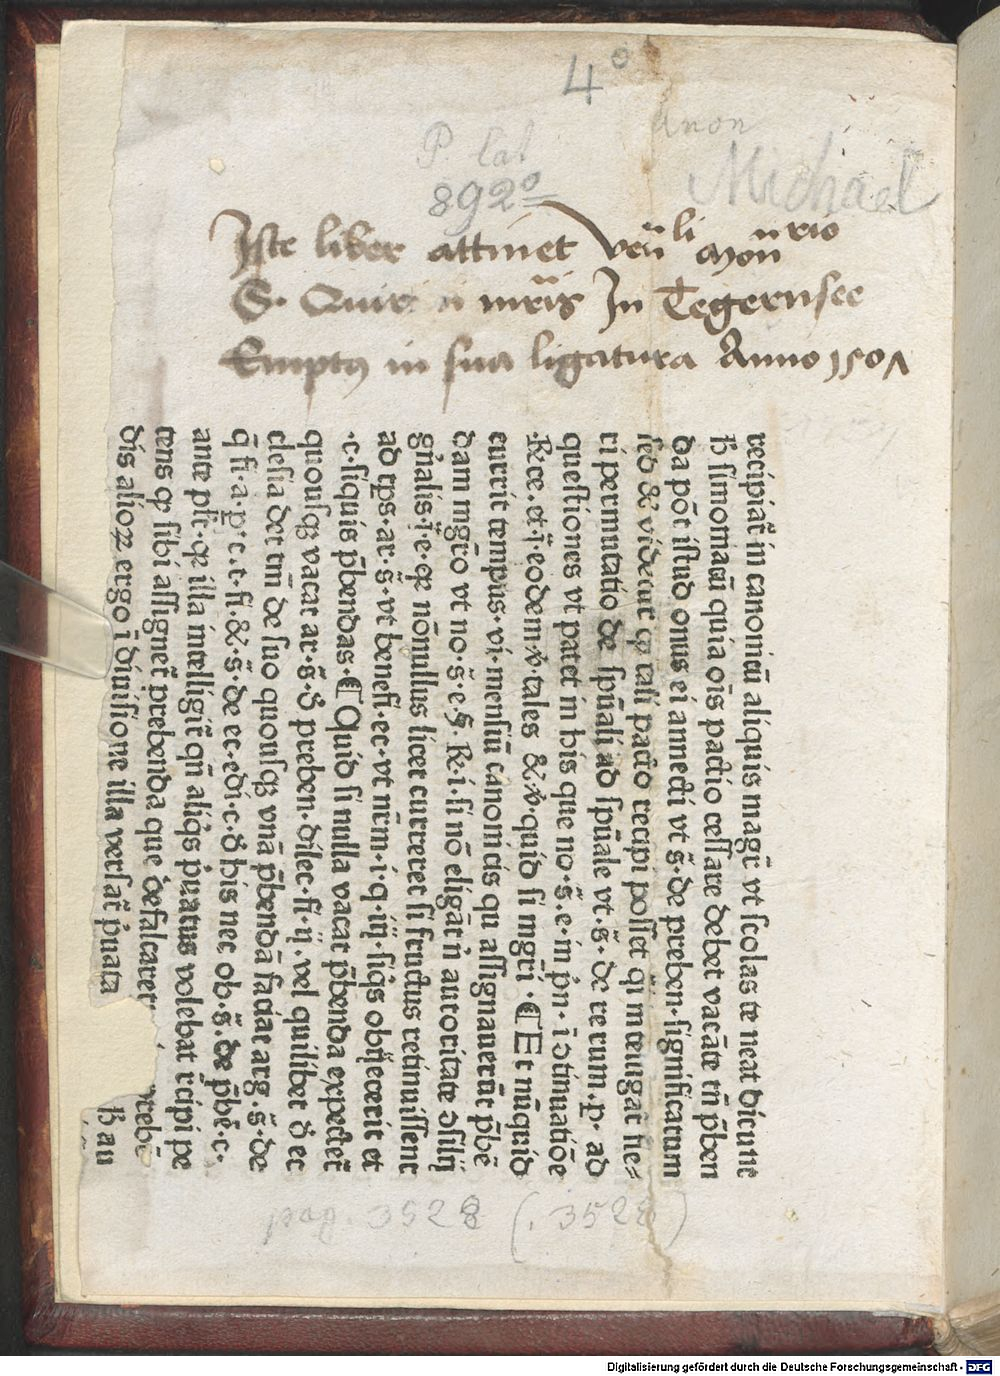 4°
Anon
P. lat
892°
Michael
Iste liber attinet ven̄li mōnrio
S. Quirini mr̄is In Tegernsee
Emptꝰ in sua ligatura Anno 1501
recipiat̃ in canonicū aliquis magr̄ vt scolas te neat dicunt
ꝧ simoniacū quia oīs pactio cessare debet vacāte tn̄ p̄ben
da pōt istud onus ei annecti vt s̄. de preben. significatum
sed & videtur ꝙ tali pacto recipi posset qi intēingat fie-
ri permutatio de sp̄uali ad sp̄uale vt. s̄. de rerum. p̱. ad
questiones vt patet in his que no. s̄. e. in pn̄. ī ↄtinuatiōe
.R. ce. et. ī. eodem. v. tales & v. quid si mgr̄i. ¶ Et nūquid
currit tempus. vi. mensiū canonicis qu assignauerūt p̄bē
dam mgr̄o vt no. s̄. e. §. R. i. si nō eligāt in autoritate ↄsilij
gn̄alis. ī. e. ꝙ nōnullus licet curreret si fructus retinuissent
ad tp̄s. ar. s̄. vt benefi. ec. vt nr̄m. i. q. iij. siq̇s obiecerit et
.c. siquis p̄bendas. ¶ Quid si nulla vacat p̄benda expectet̃
quousqꝫ vacat ar. s̄. ꝺ preben. dilec. fi. ij. vel quilibet ꝺ ec
clesia det tm̄ de suo quousqꝫ vnā p̄bendā faciat arg. s̄. de
q̄ fi. a. p̱. c. t. fi. &. s̄. de ec. edi. c. ꝺ his nec ob. s̄. de p̄be. c.
ante pſt. ꝙ illa intelligit̃ qn̄ aliq̇s p̍uatus volebat r̄cipi pe
tens ꝙ sibi assignet̃ prebenda que defalcaret prebē
dis alioꝝ ergo ī diuisione illa versat̃ p̍uata ꝧ au
3528 (. 3528)
Digitalisierung gefördert durch die Deutsche Forschungsgemeinschaft - DFG